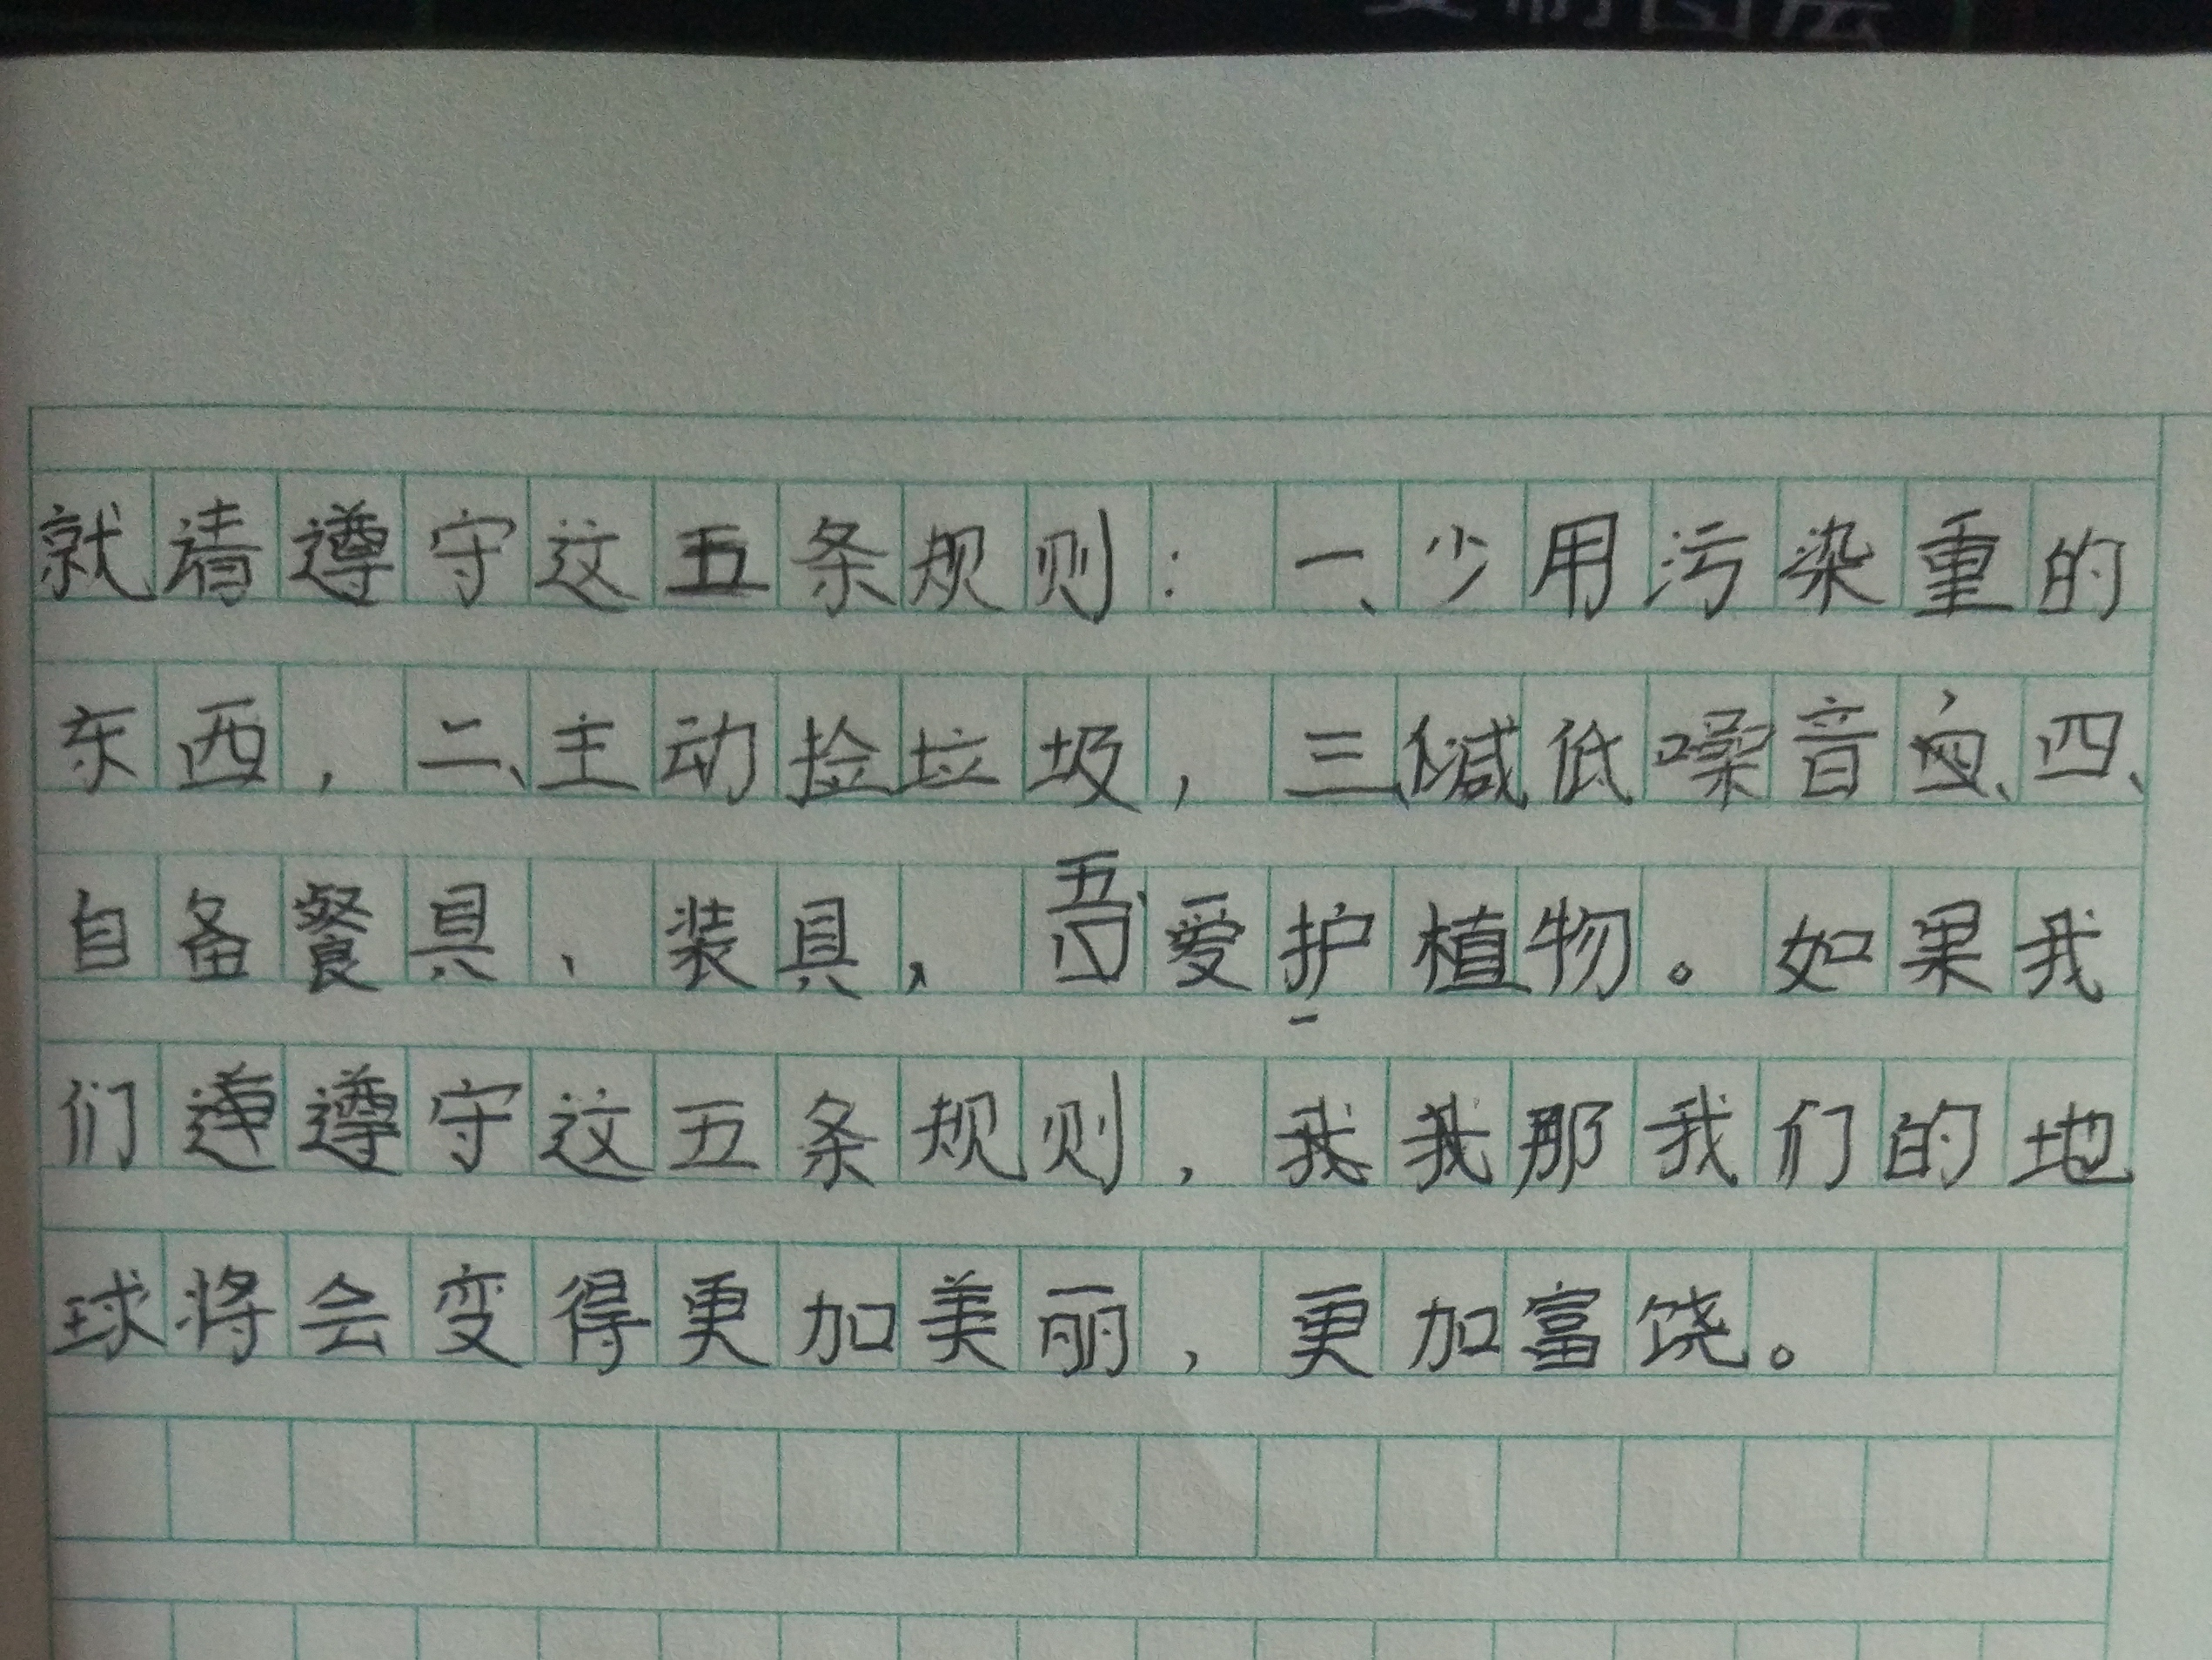 复制图层
就请遵守这五条规则：一、少用污染重的
东西，二、主动捡垃圾，三、减低噪音，四、
自备餐具、装具，五、爱护植物。如果我
们遵守这五条规则，那我们的地
球将会变得更加美丽，更加富饶。